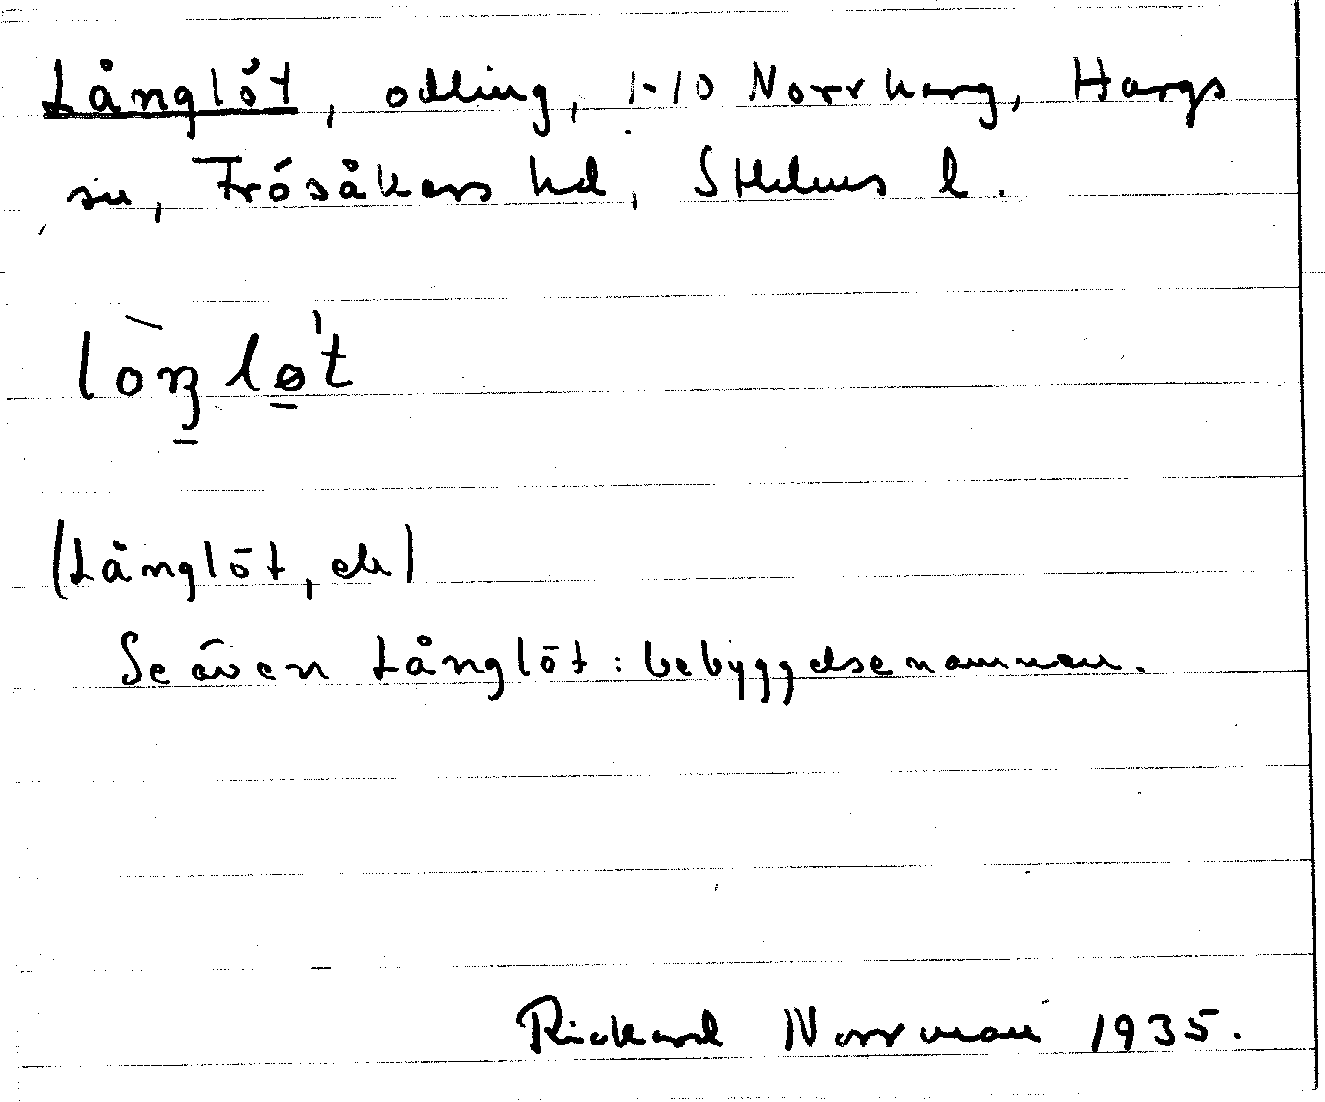 Långlöt, odling, 1-10 Norrharg, Hargs
sn, Frösåkers hd, Sthlms l.
lòŋløt
(Långlöt, ek)
Se även Långlöt: bebyggelsenamnen.
Rickard Norrman 1935.